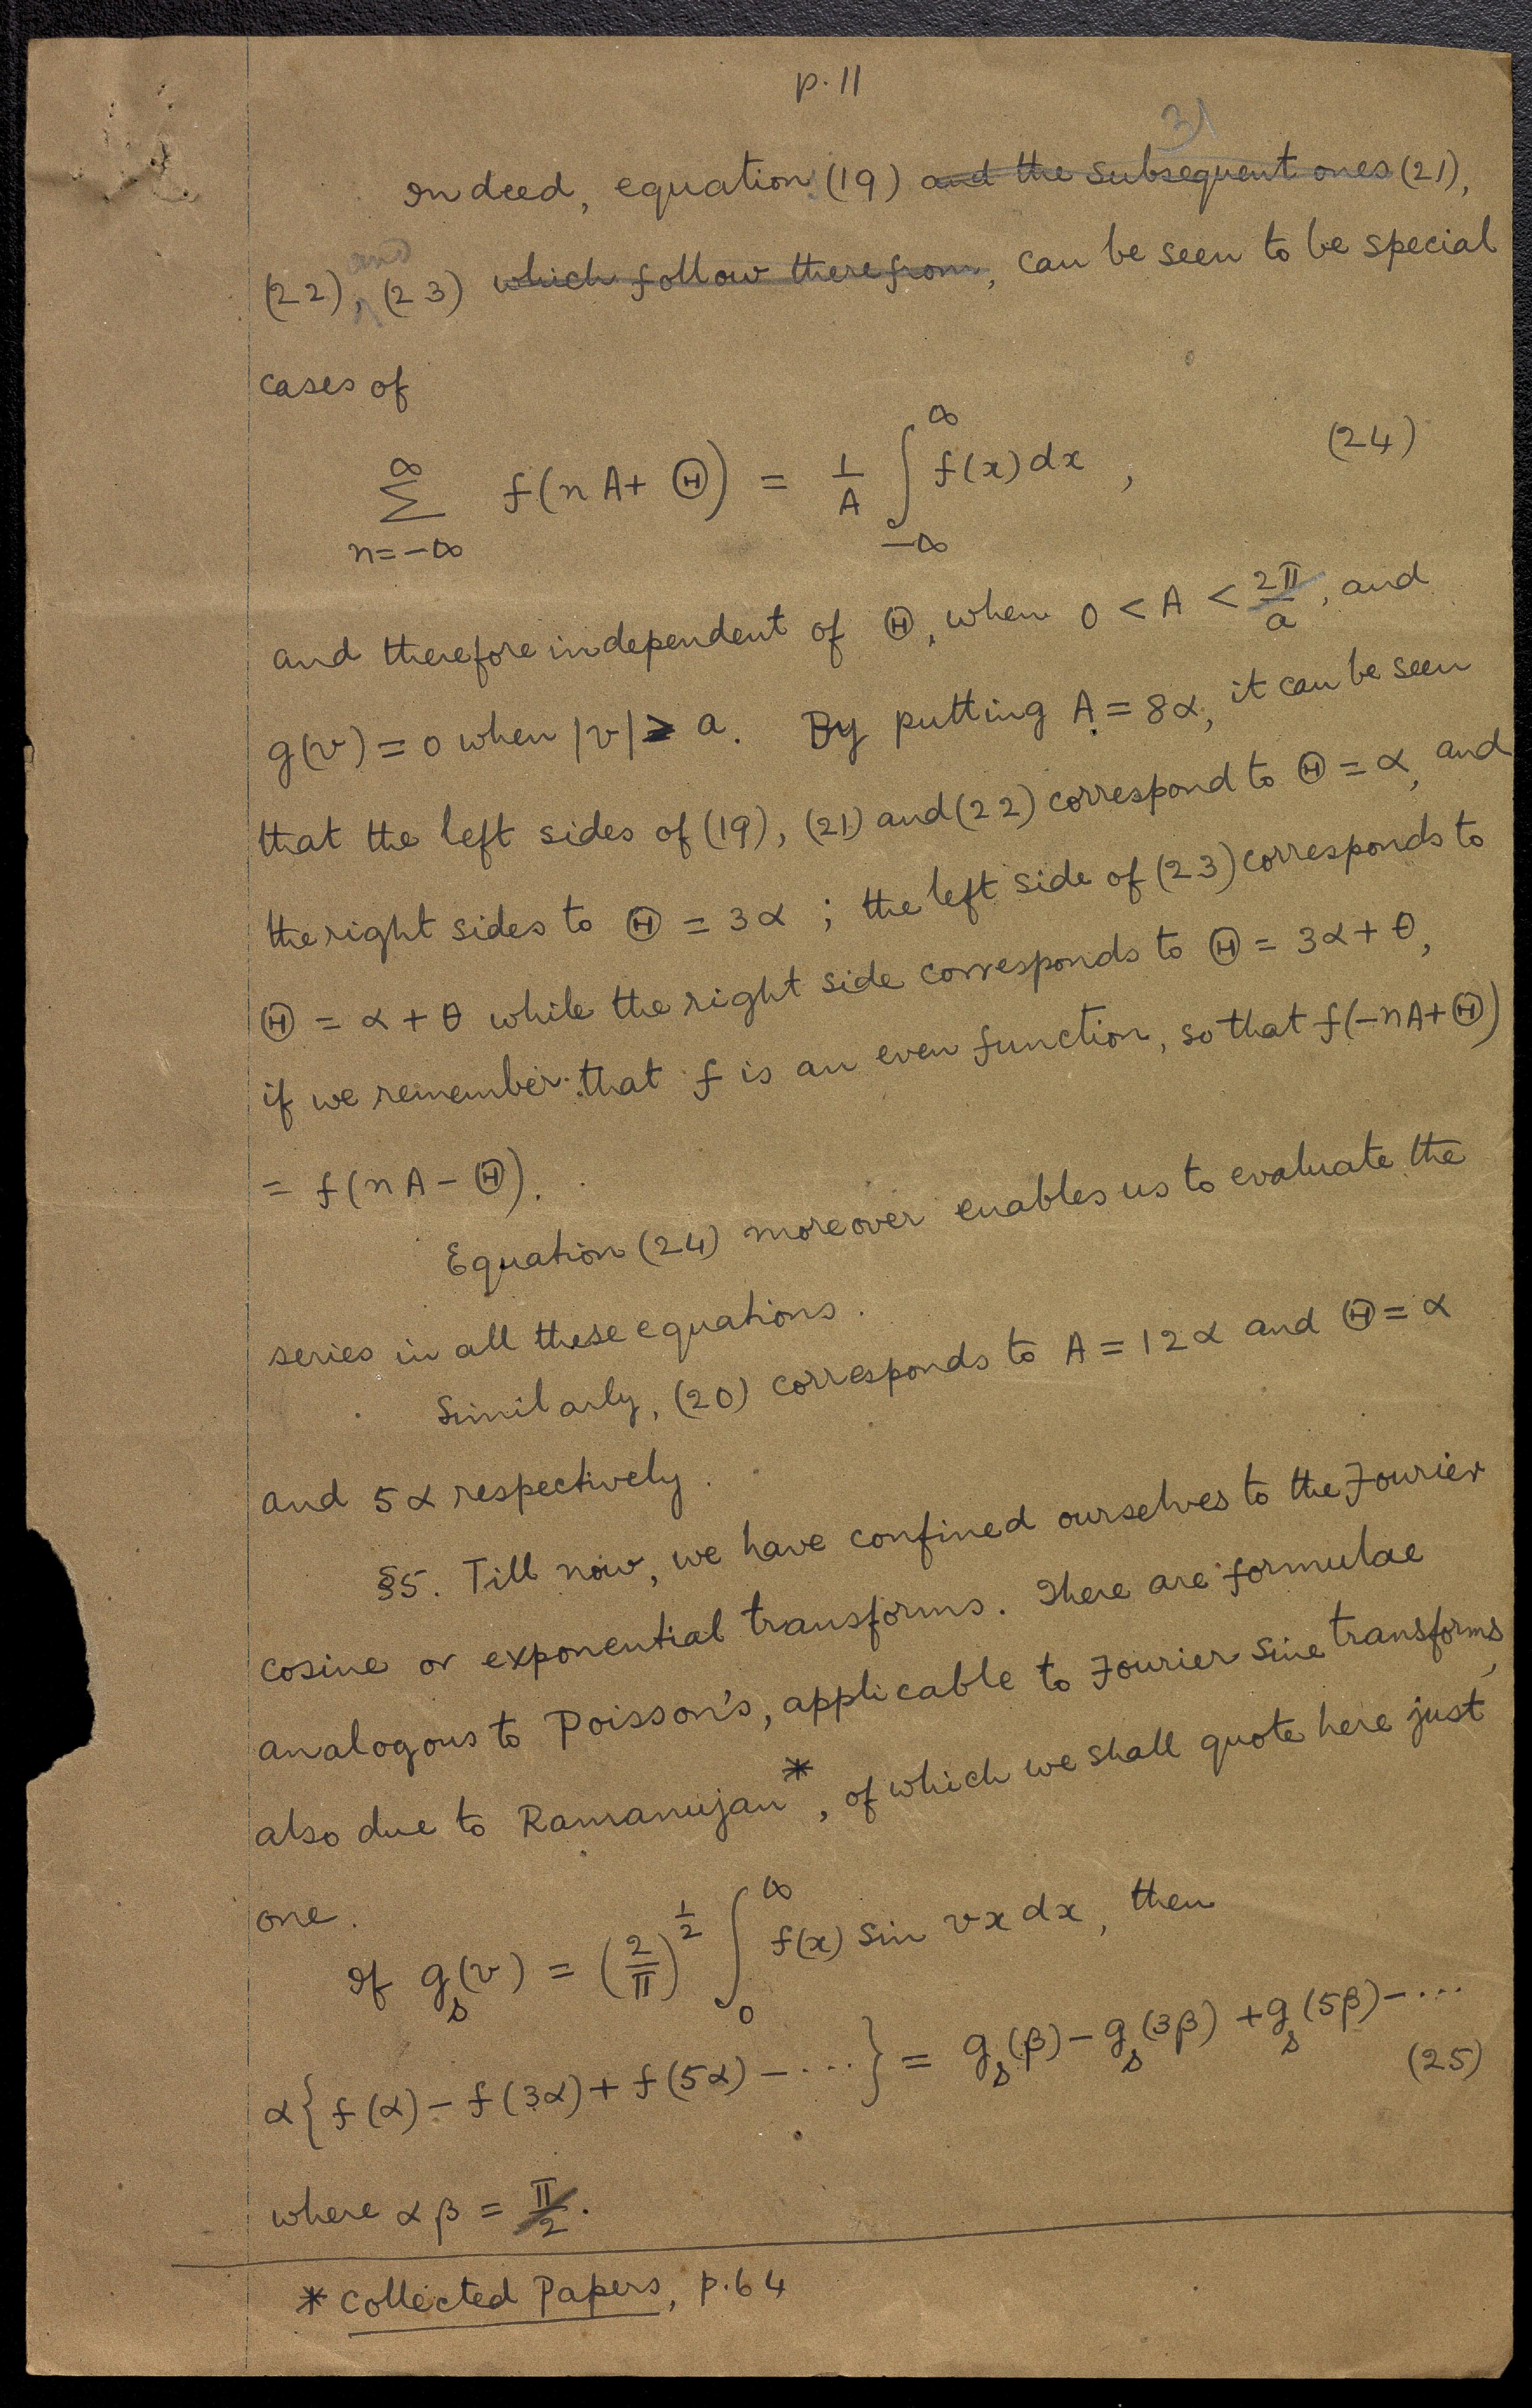 p. 11
31
Indeed, equation (19) and the subsequent ones (21),
and
(22), (23) which follow therefrom, can be seen to be special
cases of
∑_{n=-∞}^{∞} f(nA + Θ) = 1/A ∫_{-∞}^{∞} f(x) dx , (24)
and therefore independent of Θ, when 0 < A < 2π/a, and
g(v) = 0 when |v| ≥ a. By putting A = 8α, it can be seen
that the left sides of (19), (21) and (22) correspond to Θ = α, and
the right sides to Θ = 3α ; the left side of (23) corresponds to
Θ = α + θ while the right side corresponds to Θ = 3α + θ,
if we remember that f is an even function, so that f(-nA + Θ)
= f(nA - Θ).
Equation (24) moreover enables us to evaluate the
series in all these equations.
Similarly, (20) corresponds to A = 12α and Θ = α
and 5α respectively.
§5. Till now, we have confined ourselves to the Fourier
cosine or exponential transforms. There are formulae
analogous to Poisson's, applicable to Fourier sine transforms,
also due to Ramanujan*, of which we shall quote here just
one.
If g_s(v) = (2/π)^{1/2} ∫_0^∞ f(x) sin vx dx, then
α{f(α) - f(3α) + f(5α) - ····} = g_s(β) - g_s(3β) + g_s(5β) - ···
(25)
where αβ = π/2.
* Collected Papers, p. 64